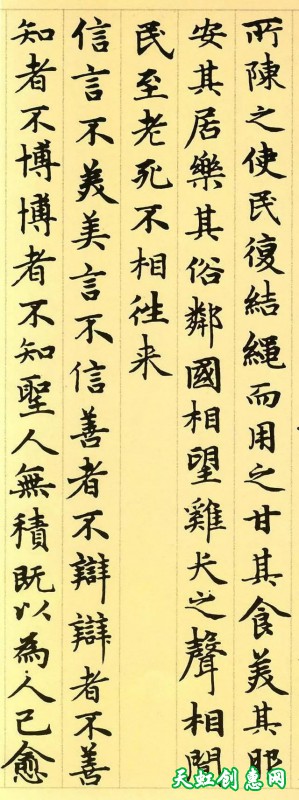 所陳之使民復結繩而用之甘其食美其服
安其居樂其俗鄰國相望雞犬之聲相聞
民至老死不相往来
信言不美美言不信善者不辯辯者不善
知者不博博者不知聖人無積既以為人己愈
天虹创意网